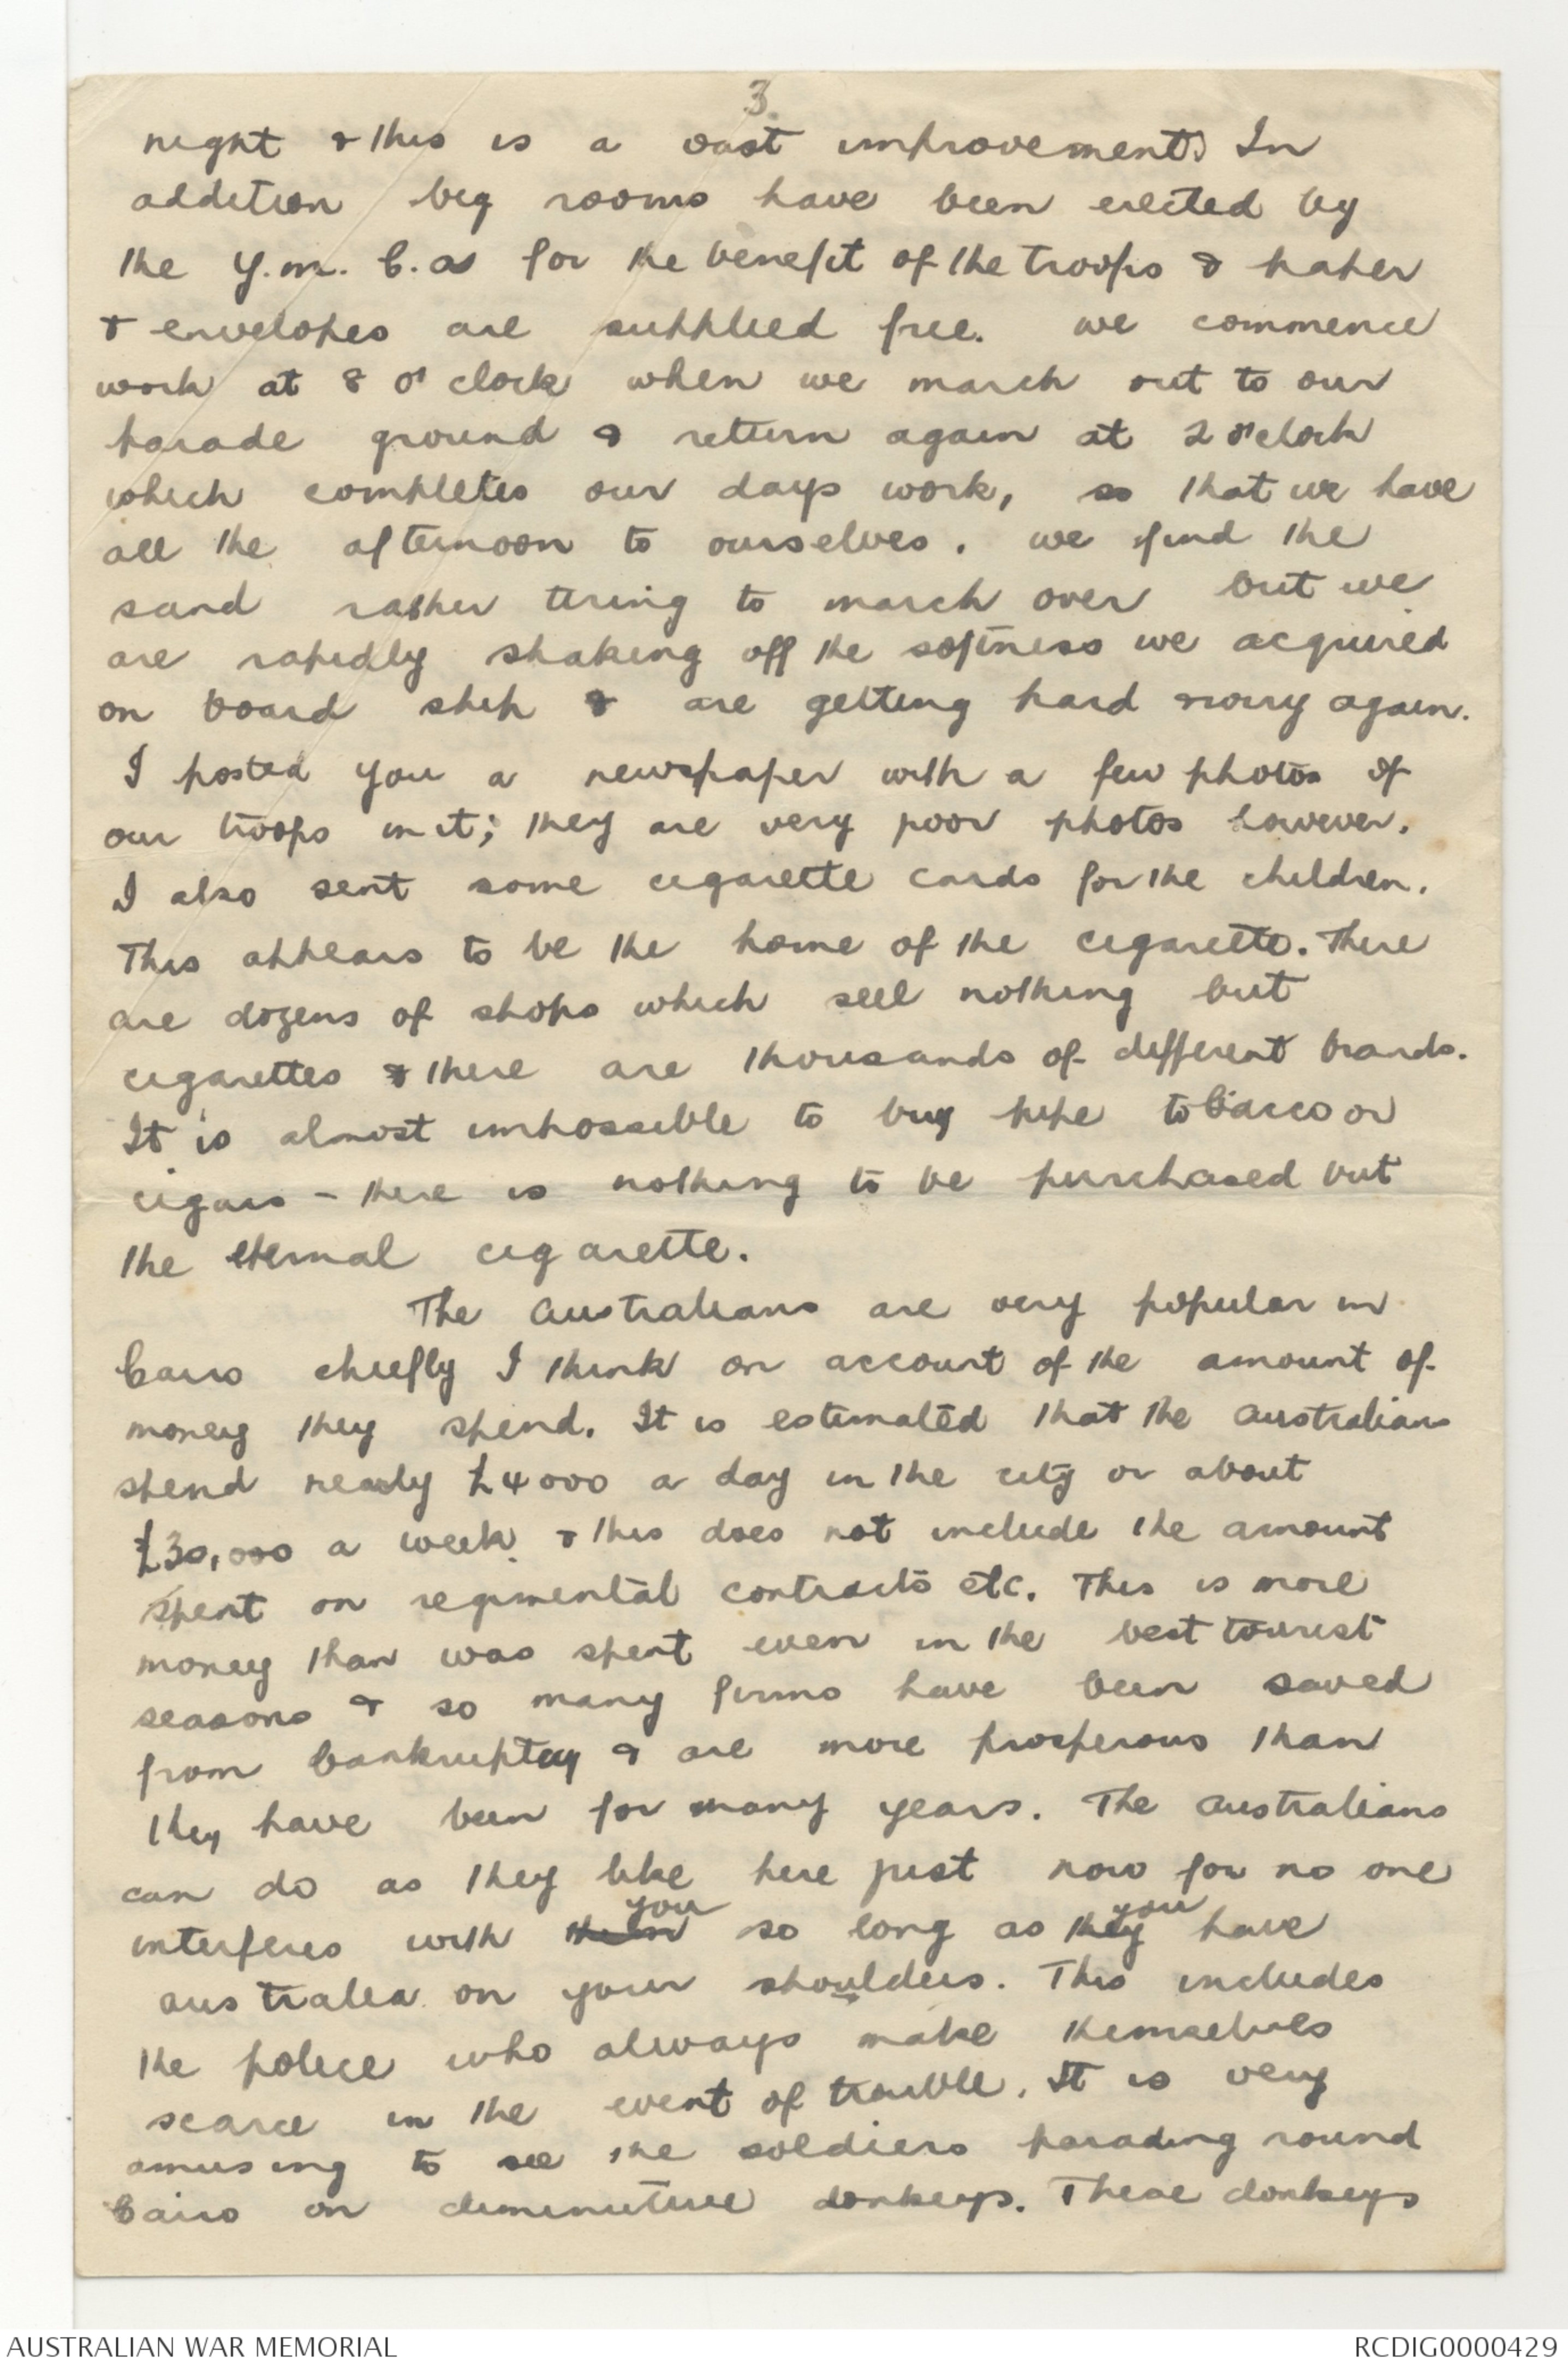 3.
night & this is a vast improvement. In
addition big rooms have been erected by
the Y.M.C.A for the benefit of the troops & paper
& envelopes are supplied free. We commence
work at 8 o'clock when we march out to our
parade ground & return again at 2 o'clock
which completes our days work, so that we have
all the afternoon to ourselves. We find the
sand rather tiring to march over but we
are rapidly shaking off the softness we acquired
on board ship & are getting hard again.
I posted you a newspaper with a few photos of
our troops in it; they are very poor photos however.
I also sent some cigarette cards for the children.
This appears to be the home of the cigarette. There
are dozens of shops which sell nothing but
cigarettes & there are thousands of different brands.
It is almost impossible to buy pipe tobacco or
cigars - there is nothing to be purchased but
the eternal cigarette.
The Australians are very popular in
Cairo chiefly I think on account of the amount of
money they spend. It is estimated that the Australians
spend nearly £4000 a day in the city or about
£30,000 a week & this does not include the amount
spent on regimental contracts etc. This is more
money than was spent even in the best tourist
seasons & so many firms have been saved
from bankruptcy & are more prosperous than
they have been for many years. The Australians
can do as they like here just now for no one
interferes with them you so long as they you have
Australia on your shoulders. This includes
the police who always make themselves
scarce in the event of trouble. It is very
amusing to see the soldiers parading round
Cairo on diminutive donkeys. These donkeys
AUSTRALIAN WAR MEMORIAL
RCDIG0000429